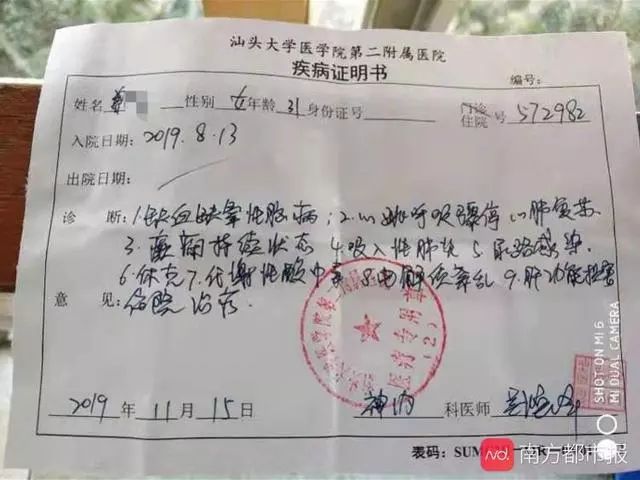 汕头大学医学院第二附属医院
疾病证明书
编号:
姓名 性别 女 年龄 31 身份证号 门诊 住院 号 572982
入院日期: 2019.8.13
出院日期:
诊 断: 1.缺血缺氧性脑病; 2.心跳呼吸骤停 心肺复苏
3.癫痫持续状态 4.吸入性肺炎 5.尿路感染.
6.休克 7.代谢性酸中毒 8.电解质紊乱 9.肝功能损害
意 见: 住院治疗.
医疗专用章
(2)
2019 年 11 月 15 日 神内 科医师
表码: SUMC
SHOT ON MI 6
MI DUAL CAMERA
Nd. 南方都市报